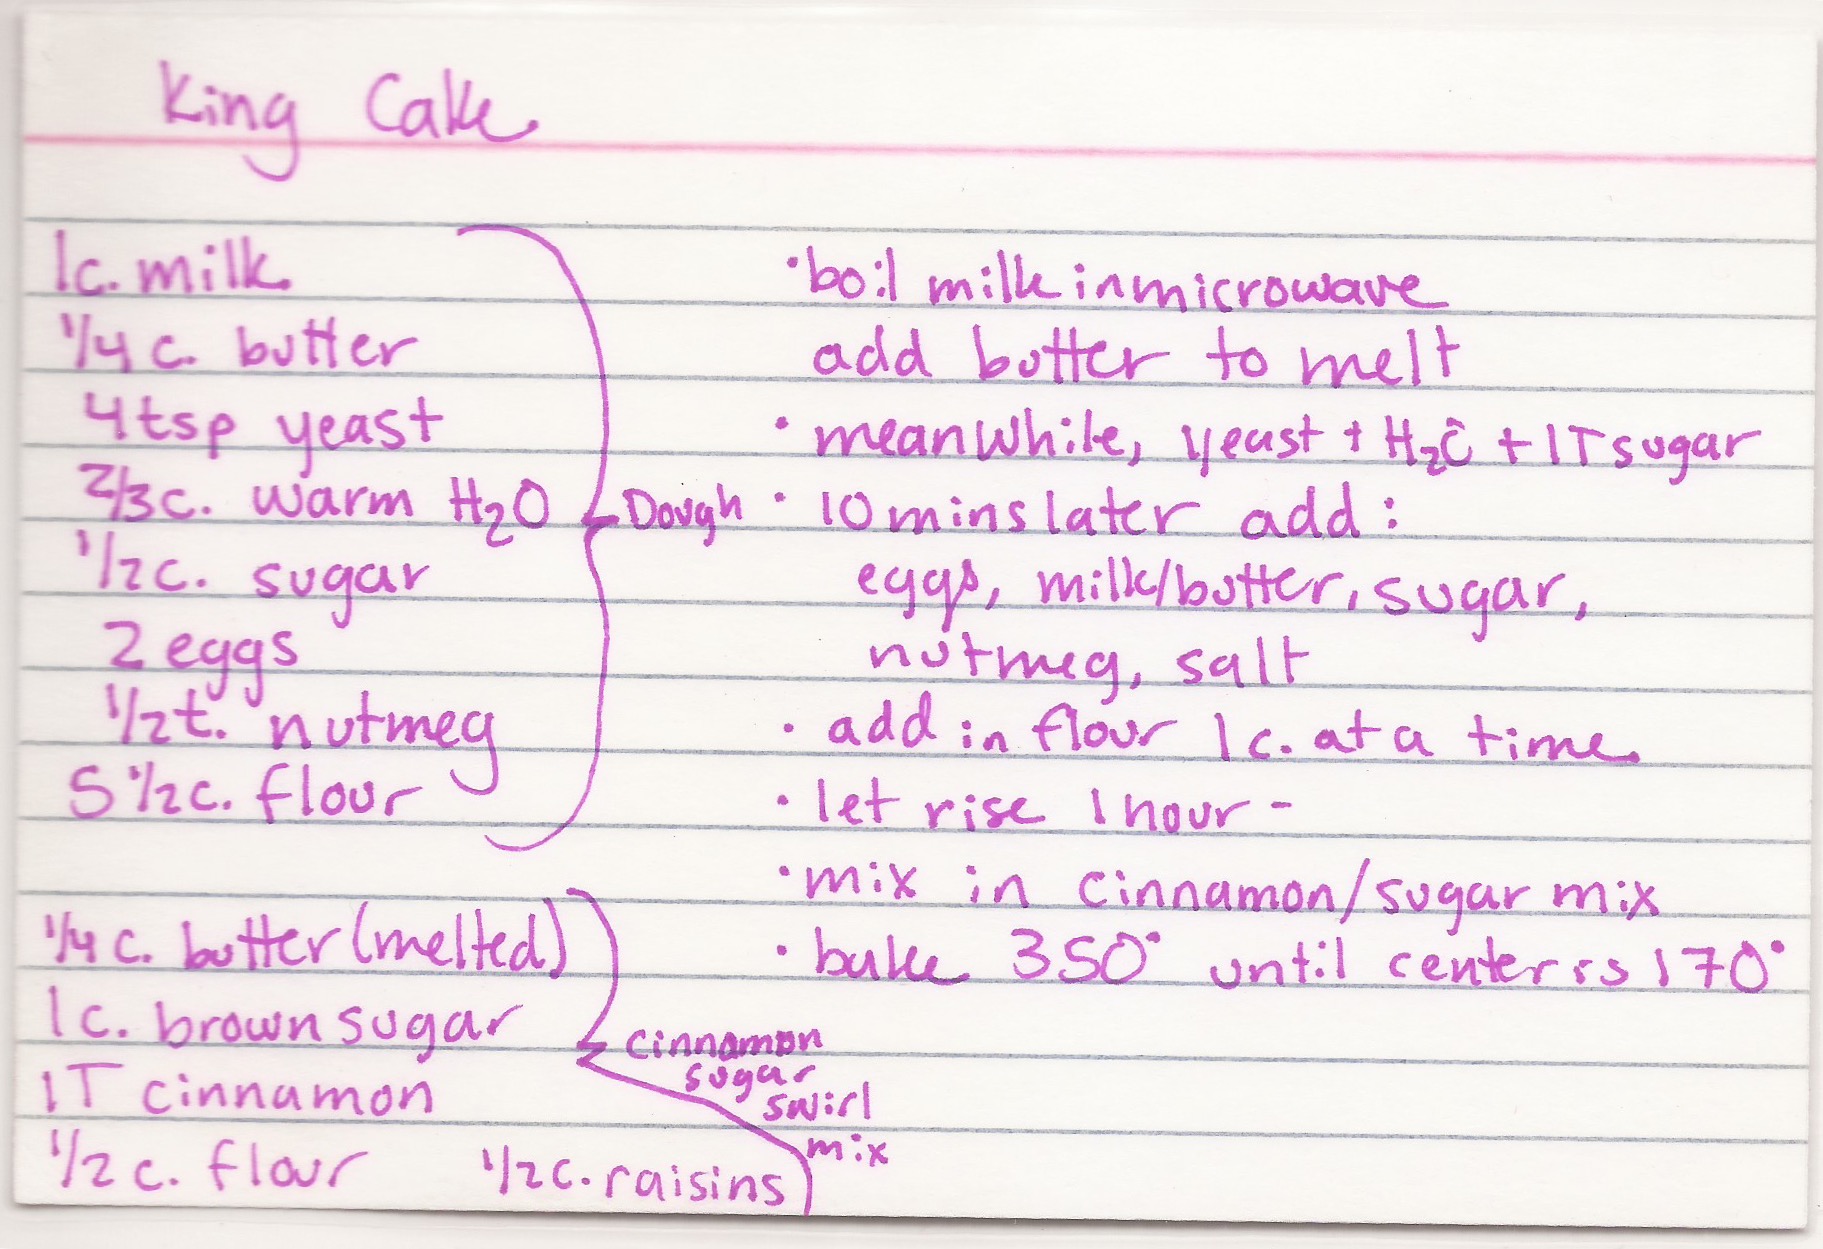 King Cake
1c. milk
1/4 c. butter
4 tsp yeast
2/3 c. warm H2O
1/2 c. sugar
2 eggs
1/2 t. nutmeg
5 1/2 c. flour
Dough
1/4 c. butter (melted)
1 c. brown sugar
1T cinnamon
1/2 c. flour 1/2 c. raisins
cinnamon
sugar
swirl
mix
· boil milk in microwave
add butter to melt
· meanwhile, yeast + H2O + 1T sugar
· 10 mins later add:
eggs, milk/butter, sugar,
nutmeg, salt
· add in flour 1 c. at a time.
· let rise 1 hour -
· mix in cinnamon/sugar mix
· bake 350° until center is 170°